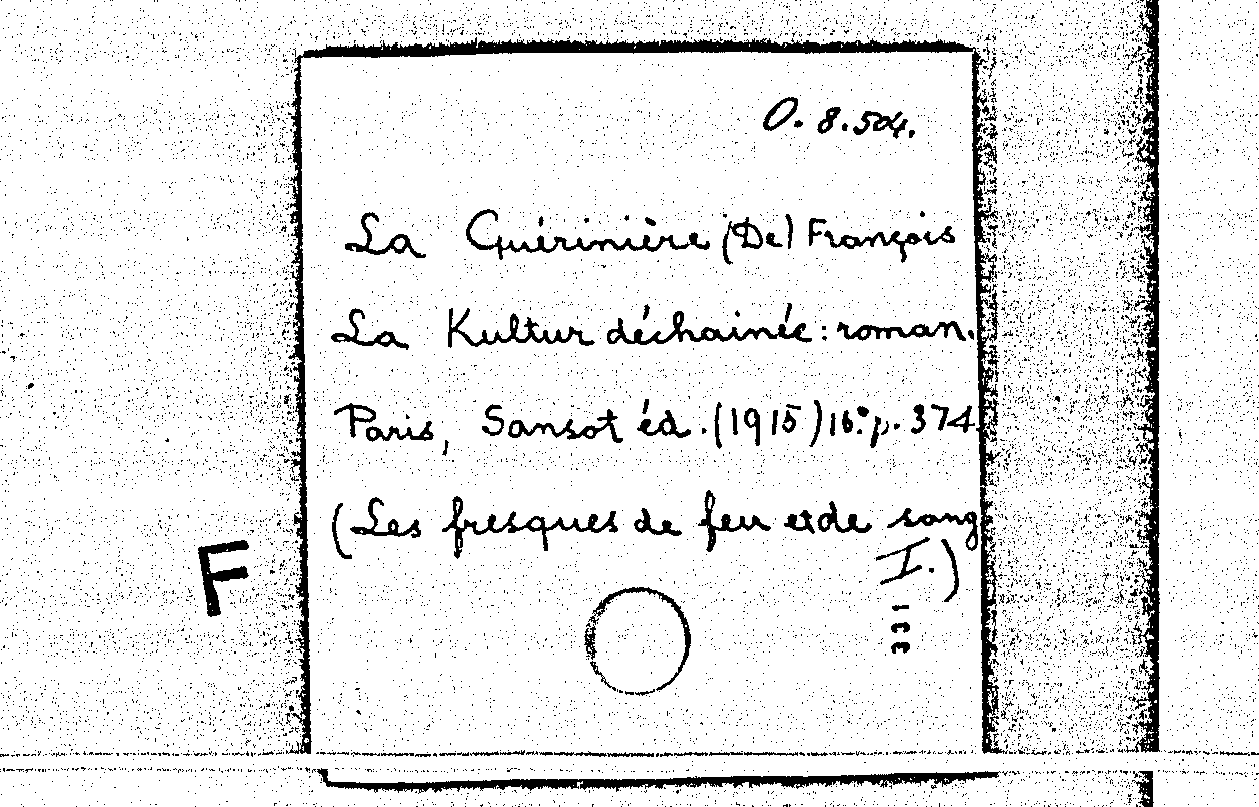 O. 8.504.
La Guérinière (De) François
La Kultur déchainée: roman.
Paris, Sansot éd. (1915) 16.° p. 374.
(Les fresques de feu et de sang
I.)
F
133